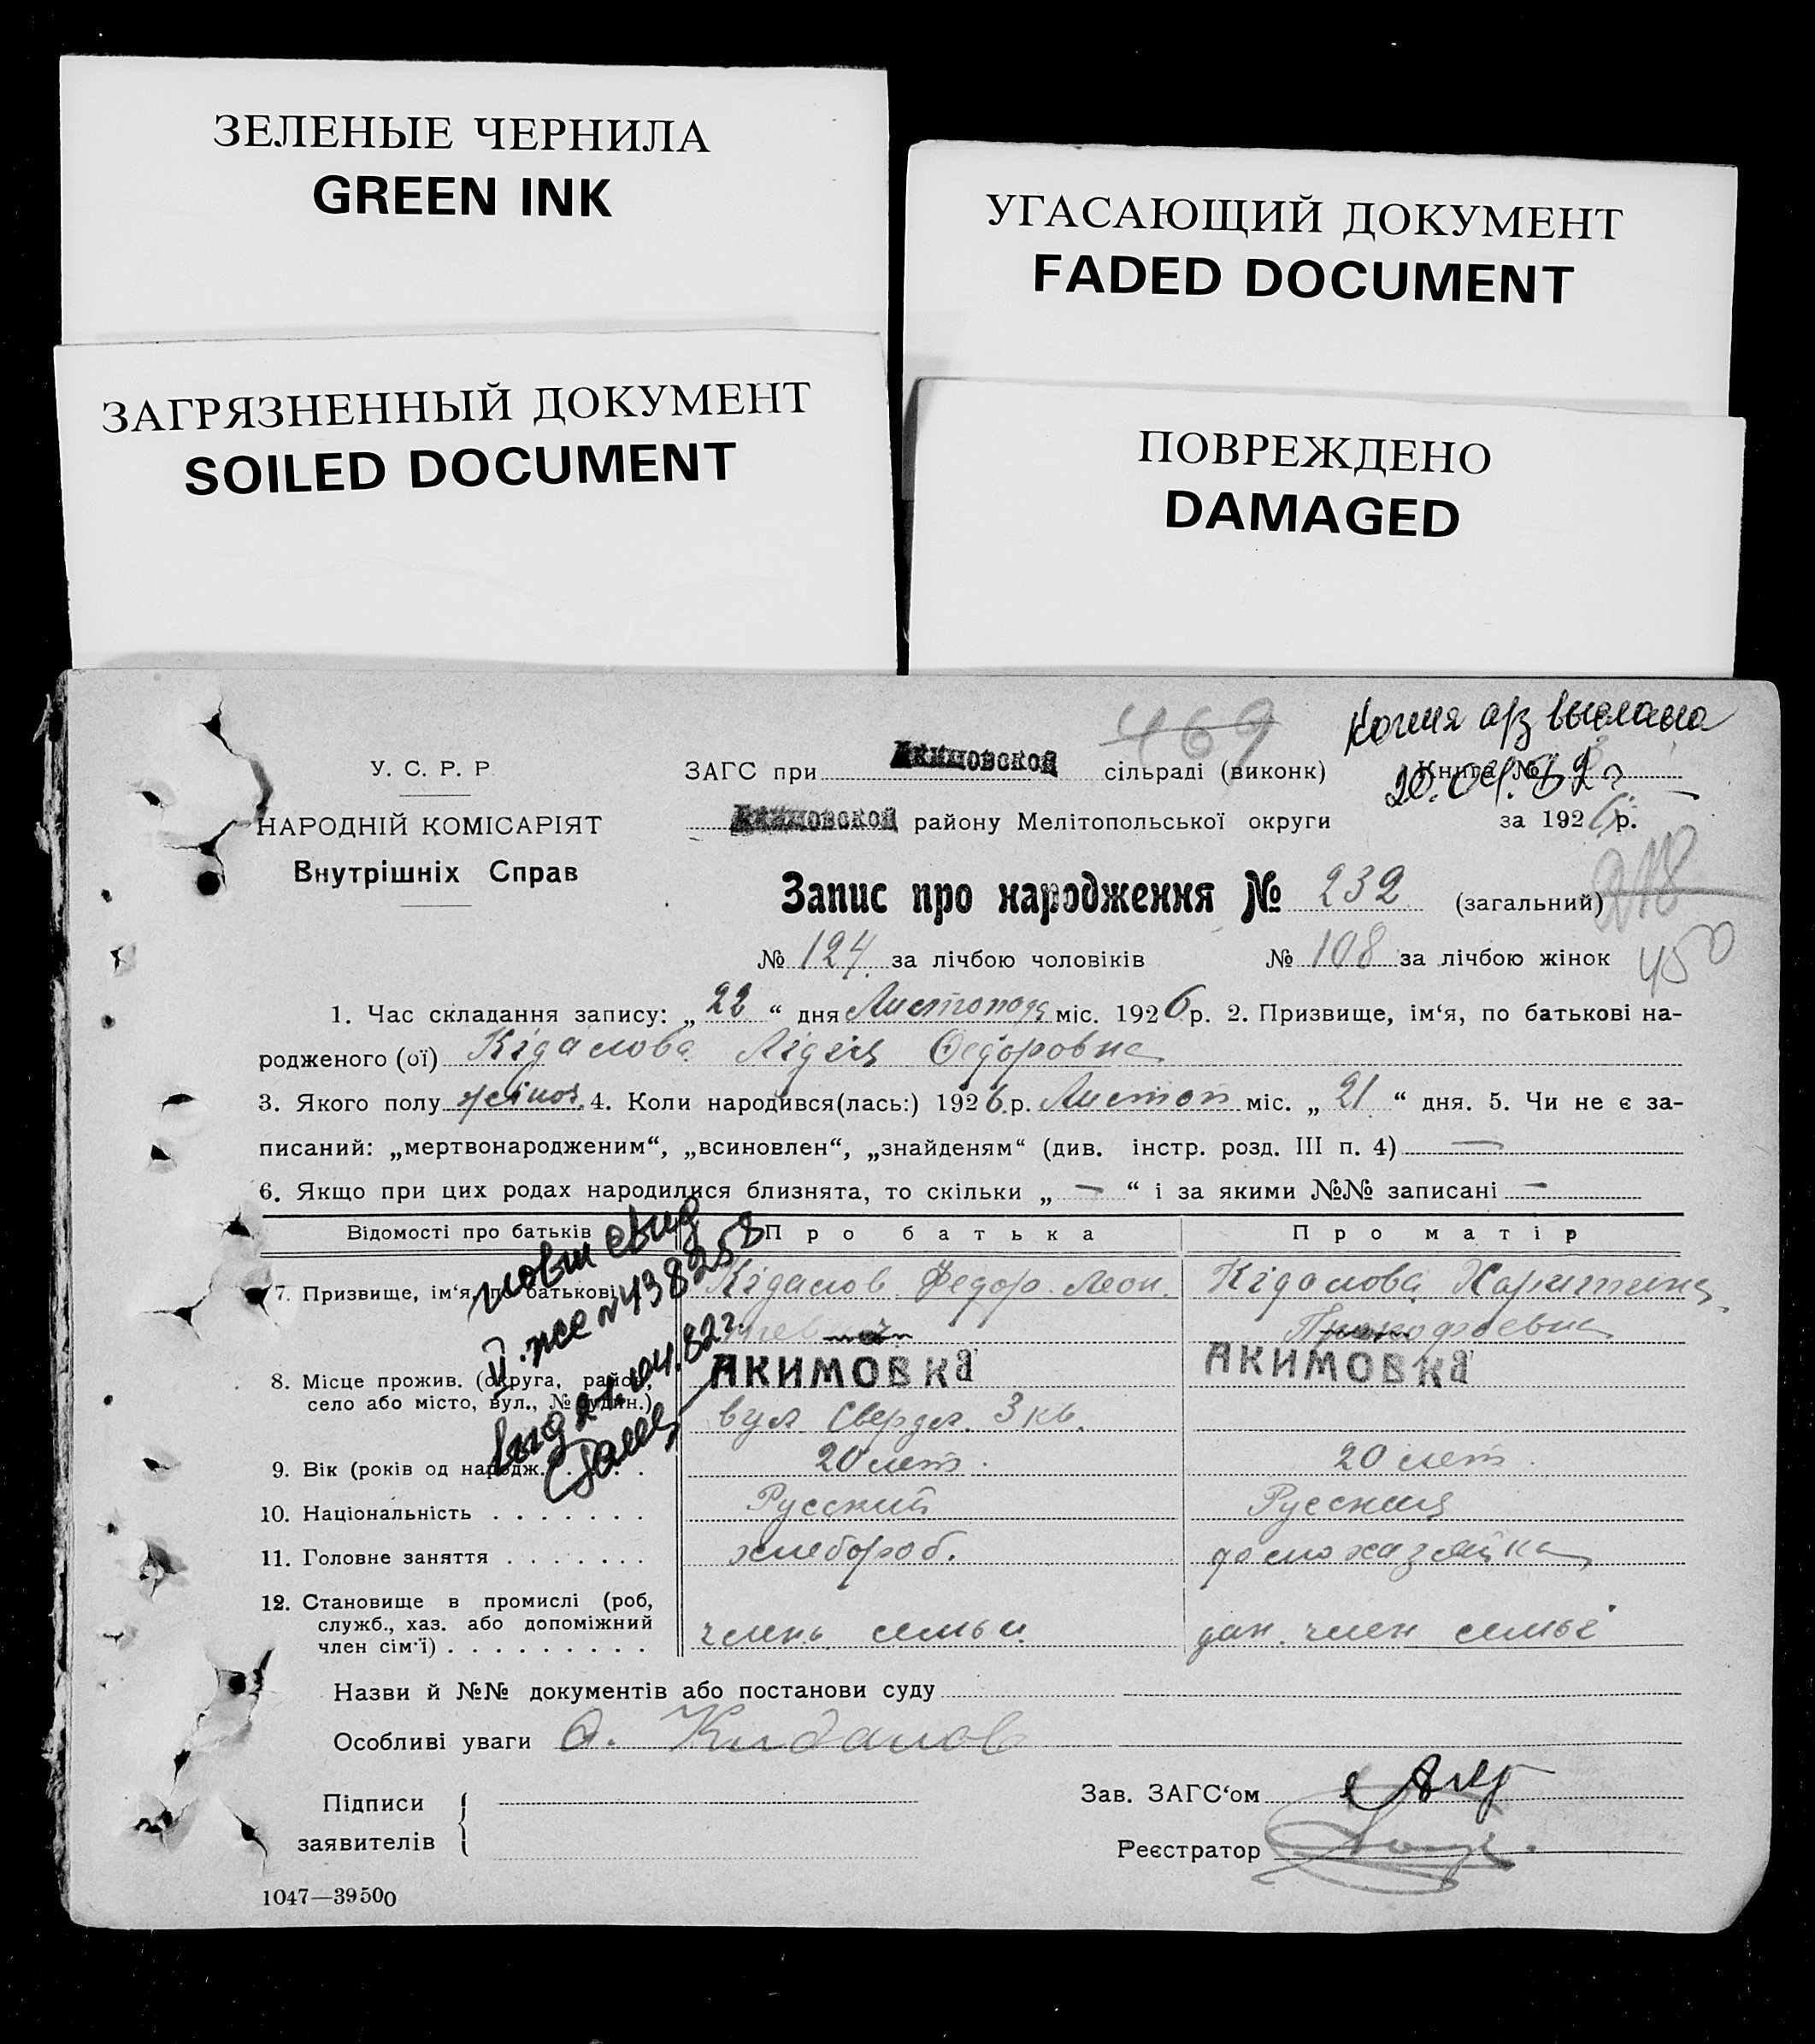 ЗЕЛЕНЫЕ ЧЕРНИЛА
GREEN INK
УГАСАЮЩИЙ ДОКУМЕНТ
FADED DOCUMENT
ЗАГРЯЗНЕННЫЙ ДОКУМЕНТ
SOILED DOCUMENT
ПОВРЕЖДЕНО
DAMAGED
469
Копия а/з выслана
20.04.82 г
У. С. Р. Р
НАРОДНІЙ КОМІСАРІЯТ
Внутрішніх Справ
ЗАГС при Акимовской сільраді (виконк) Книга №
Акимовской району Мелітопольської округи за 1926 р.
Запис про народження № 232 (загальний) 218
№ 124 за лічбою чоловіків № 108 за лічбою жінок 450
1. Час складання запису: „22“ дня Листопода міс. 1926 р. 2. Призвище, ім‘я, по батькові на-
родженого (ої) Кідалова Лідія Федоровна
3. Якого полу жіноч. 4. Коли народився(лась:) 1926 р. Листоп міс. „21“ дня. 5. Чи не є за-
писаний: „мертвонародженим“, „всиновлен“, „знайденям“ (див. інстр. розд. III п. 4) —
6. Якщо при цих родах народилися близнята, то скільки „—“ і за якими №№ записані —
Відомості про батьків Про батька Про матір
7. Призвище, ім‘я, по батькові Кідалов Федор Леон. Кідалова Харитина
Прокофьевна
8. Місце прожив. (округа, район, село або місто, вул., № будин.) АКИМОВКА АКИМОВКА
вул Свердл. 3 кв.
9. Вік (років од народж. . . . . . 20 лет. 20 лет.
10. Національність . . . . . . . Русский Русская
11. Головне заняття . . . . . . . хлебороб. домохазяйка
12. Становище в промислі (роб,
служб., хаз. або допоміжний
член сім‘ї) . . . . . . . . . членъ семьи дом. член семье
№438258
04.82г.
Назви й №№ документів або постанови суду
Особливі уваги Ф. Кидалов
Підписи
заявителів
Зав. ЗАГС‘ом
Реєстратор
1047—39500